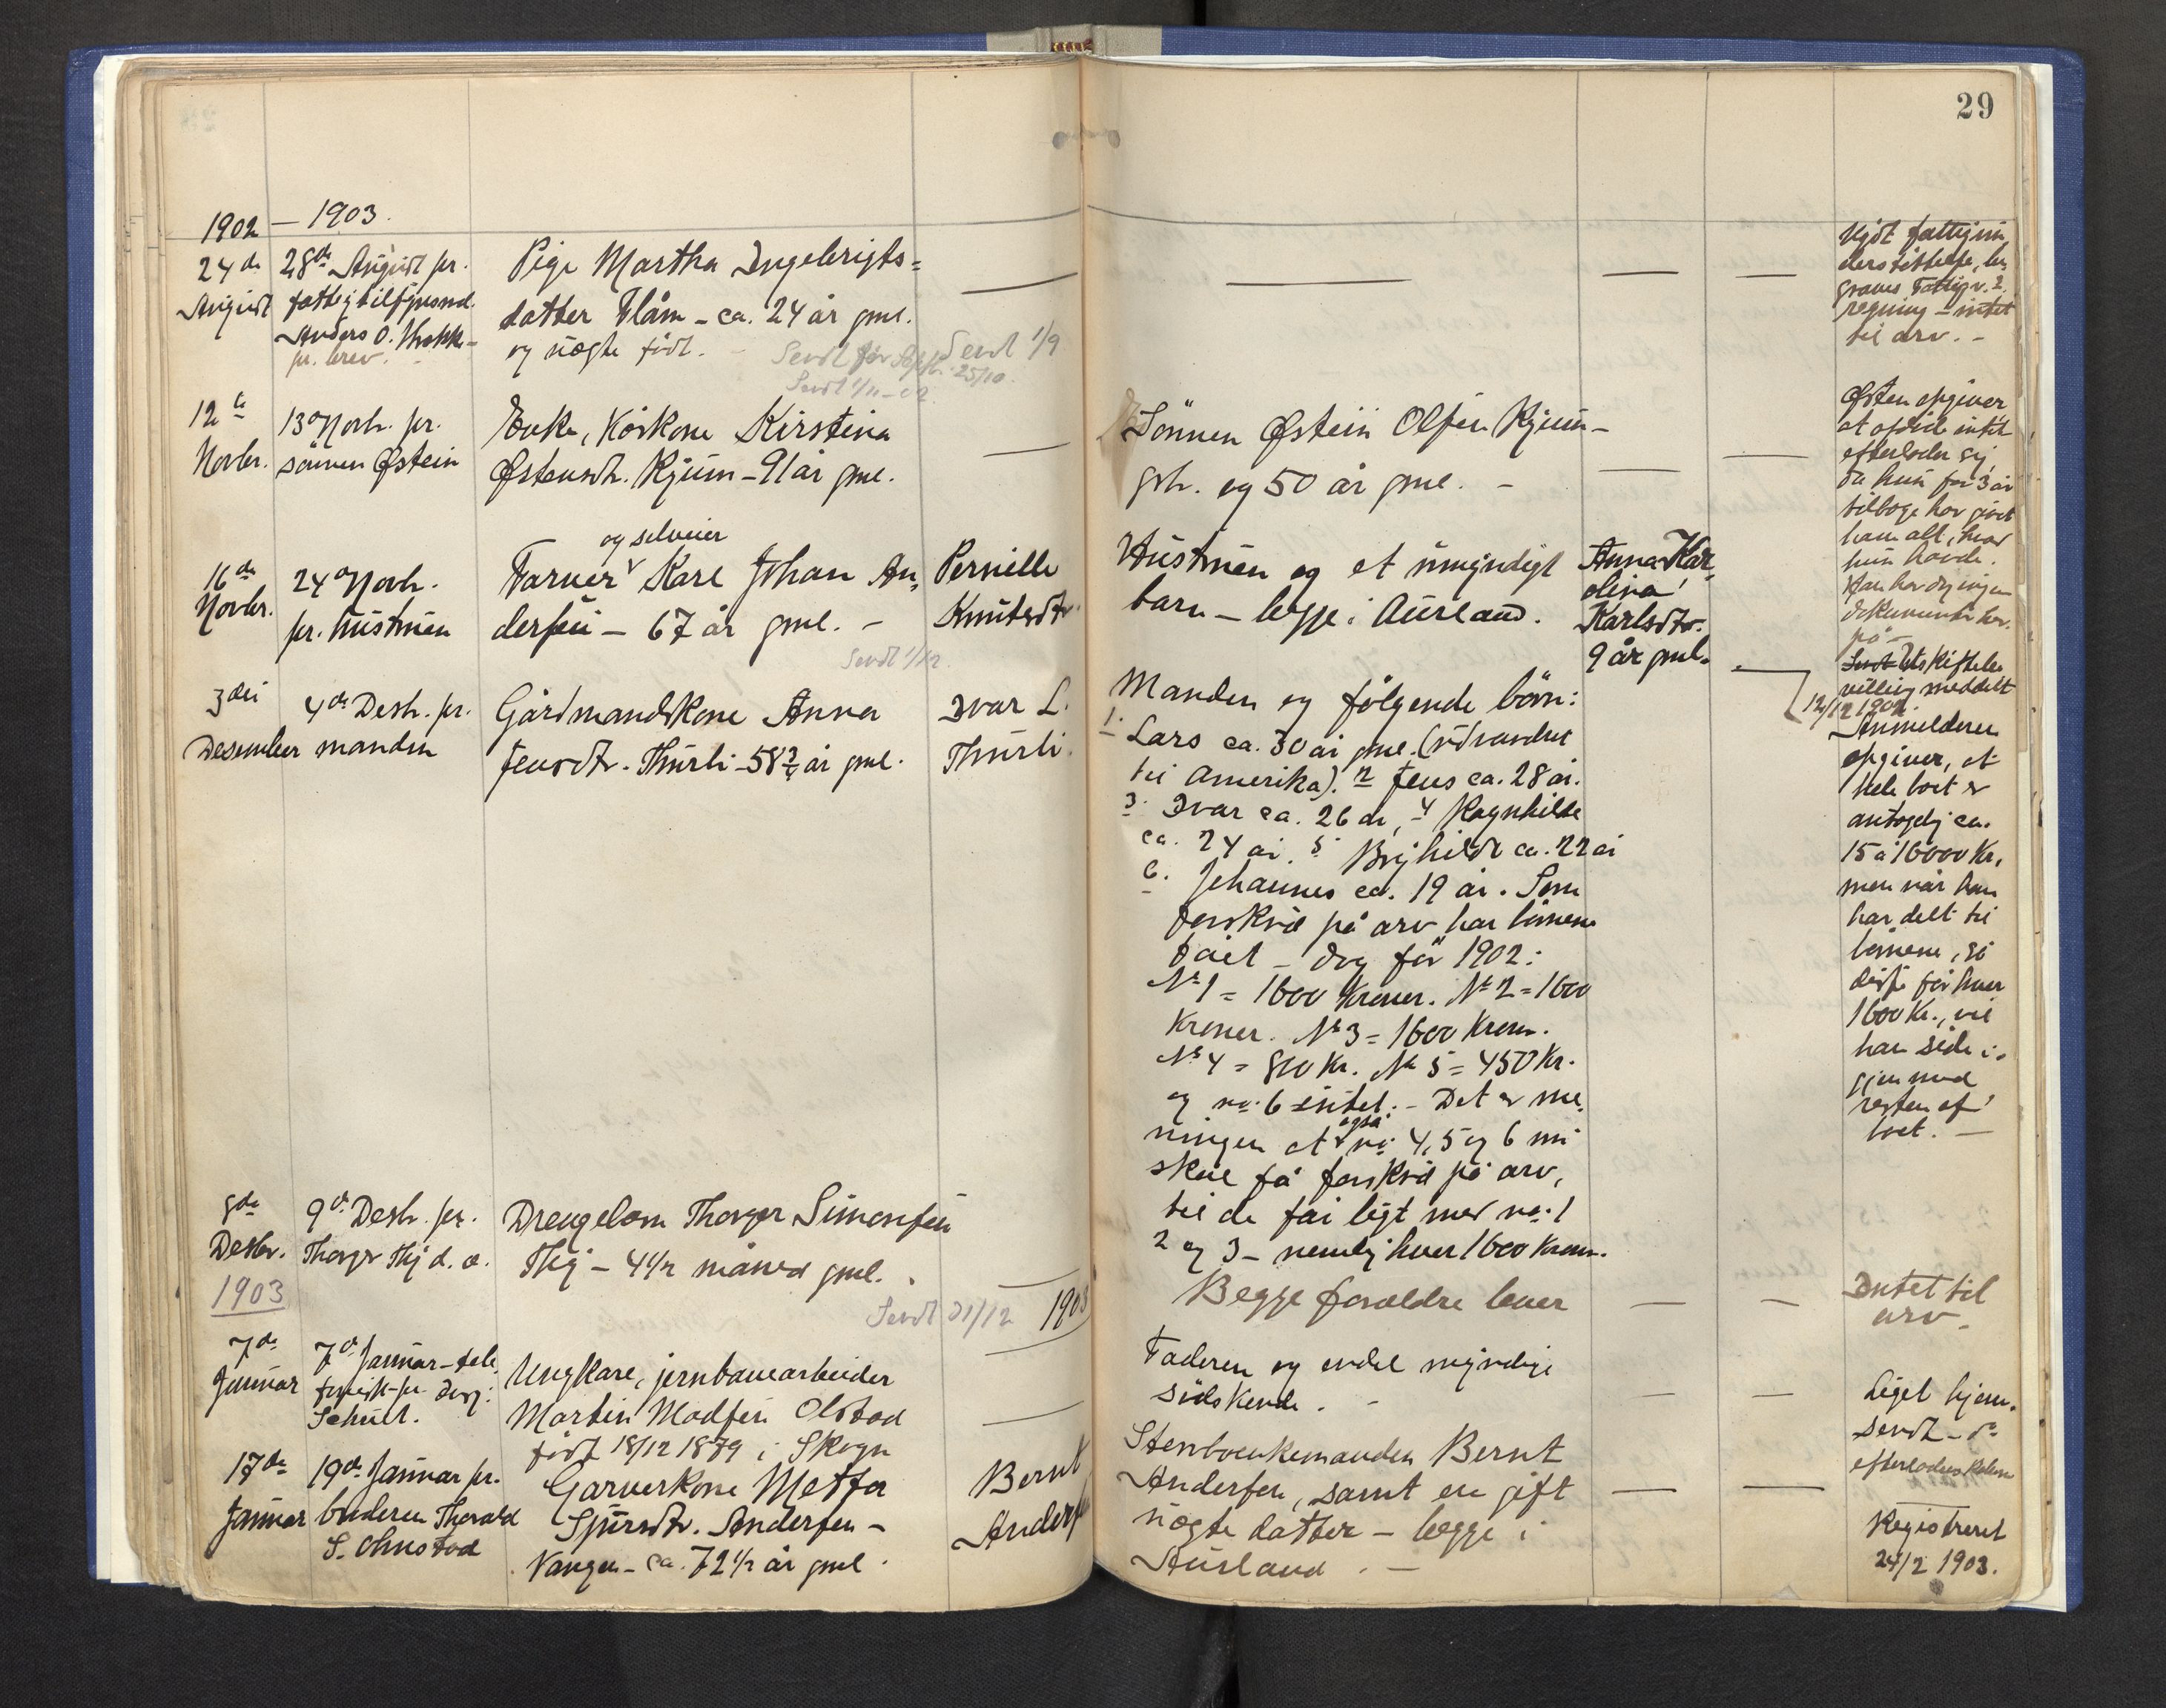 29
1902 — 1903.
24de August
28de August pr.
fattigtilsynsmd.
Anders O.
pr. brev.
Pige Martha Ingebrigts=
datter Flåm - ca. 24 år gml.
og uægte født.
Sendt 1/9
Sendt 25/10.
Sendt 1/11-02.
Nydt fattigun
derstøttelse, be
graves
regning - intet
til arv. -
12te
Novbr.
13de Novb. pr.
sönnen Østein
Enke, Kårkone Kirstina
Østensdtr. Kjum - 91 år gml.
Sönnen Østein Olsen Kjum -
gbr. og 50 år gml. -
Østen opgiver
at afdøde intet
efterlader sig,
da hun for 3 år
tilbage har givet
ham alt, hvad
hun havde.
Han har dog ingen
dokumenter her-
på -
16de
Novbr.
24de Novb.
pr. hustruen
og selveier
Farver Karl Johan An=
dersen - 67 år gml. -
Sendt 1/12.
Pernille
Knutsdtr.
Hustruen og et umyndigt
barn - begge i Aurland.
Anna Kar=
olina
Karlsdtr.
9 år gml.
Uskiftebe
villing meddelt
12/12 1902.
3die
Desember
4de Desb. pr.
manden
Gårdmandskone Anna
Jensdtr. Thurli - 58 3/4 år gml.
Ivar L.
Thurli.
Manden og følgende börn:
1. Lars ca. 30 år gml. (udvandret
til Amerika). 2 Jens ca. 28 år.
3. Ivar ca. 26 år, 4 Ragnhilde
ca. 24 år. 5. Brithilde ca. 22 år
6. Johannes ca. 19 år. Som
forskud på arv har börnene
fået - dog för 1902:
No 1 = 1600 Kroner. No 2 = 1600
Kroner. No 3 = 1600 Kroner.
No 4 = 800 Kr. No 5 = 450 Kr.
og no. 6 intet. - Det er me-
også
ningen at no. 4, 5 og 6 nu
skal få forskud på arv,
til de får ligt med no. 1
2 og 3 - nemlig hver 1600 Kroner.
Anmelderen
opgiver, at
hele boet er
antagelig ca.
15 à 16000 Kr,
men når han
har delt til
börnene, så
disse får hver
1600 Kr., vil
han sidde i-
gjen med
resten af
boet. —
8de
Desbr.
9de Desb. pr.
Thorger Thj d. æ.
Drengebarn Thorger Simonsen
Thj - 4 1/2 måned gml.
Sendt 31/12
Begge forældre lever
Intet til
arv.
1903
1903
7de
Januar
7de Januar - tele
fonisk pr.
Schult.
Ungkarl, jernbanearbeider
Martin Madsen Olstad
født 18/12 1879 i Skogn
Faderen og endel myndige
södskende. -
Liget hjem-
sendt -
17de
Januar
19de Januar pr.
broderen Thorald
S. Onstad
Garverkone Metta
Sjursdtr. Andersen -
Vangen - ca. 72 1/2 år gml.
Bernt
Andersen
Bernt
Andersen, samt en gift
uægte datter - begge i
Aurland. —
Registreret
24/2 1903.